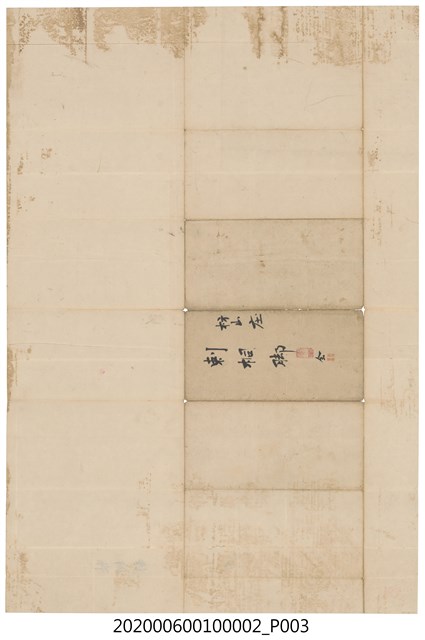 枋山庄
刺桐脚
全
202000600100002_P003